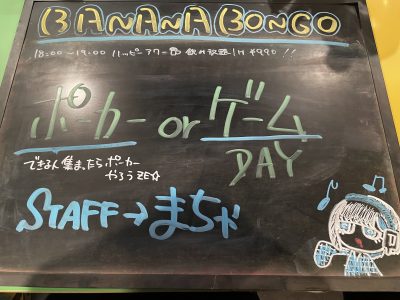 BANANA BONGO
18:00〜19:00 ハッピアワー 飲み放題1H ¥990!!
ポーカー or ゲーム
DAY
できる人集まったらポーカー
やろうZE☆
STAFF→まちゃ